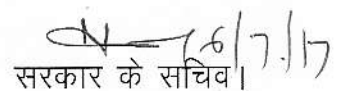 6/7/17
सरकार के सचिव।